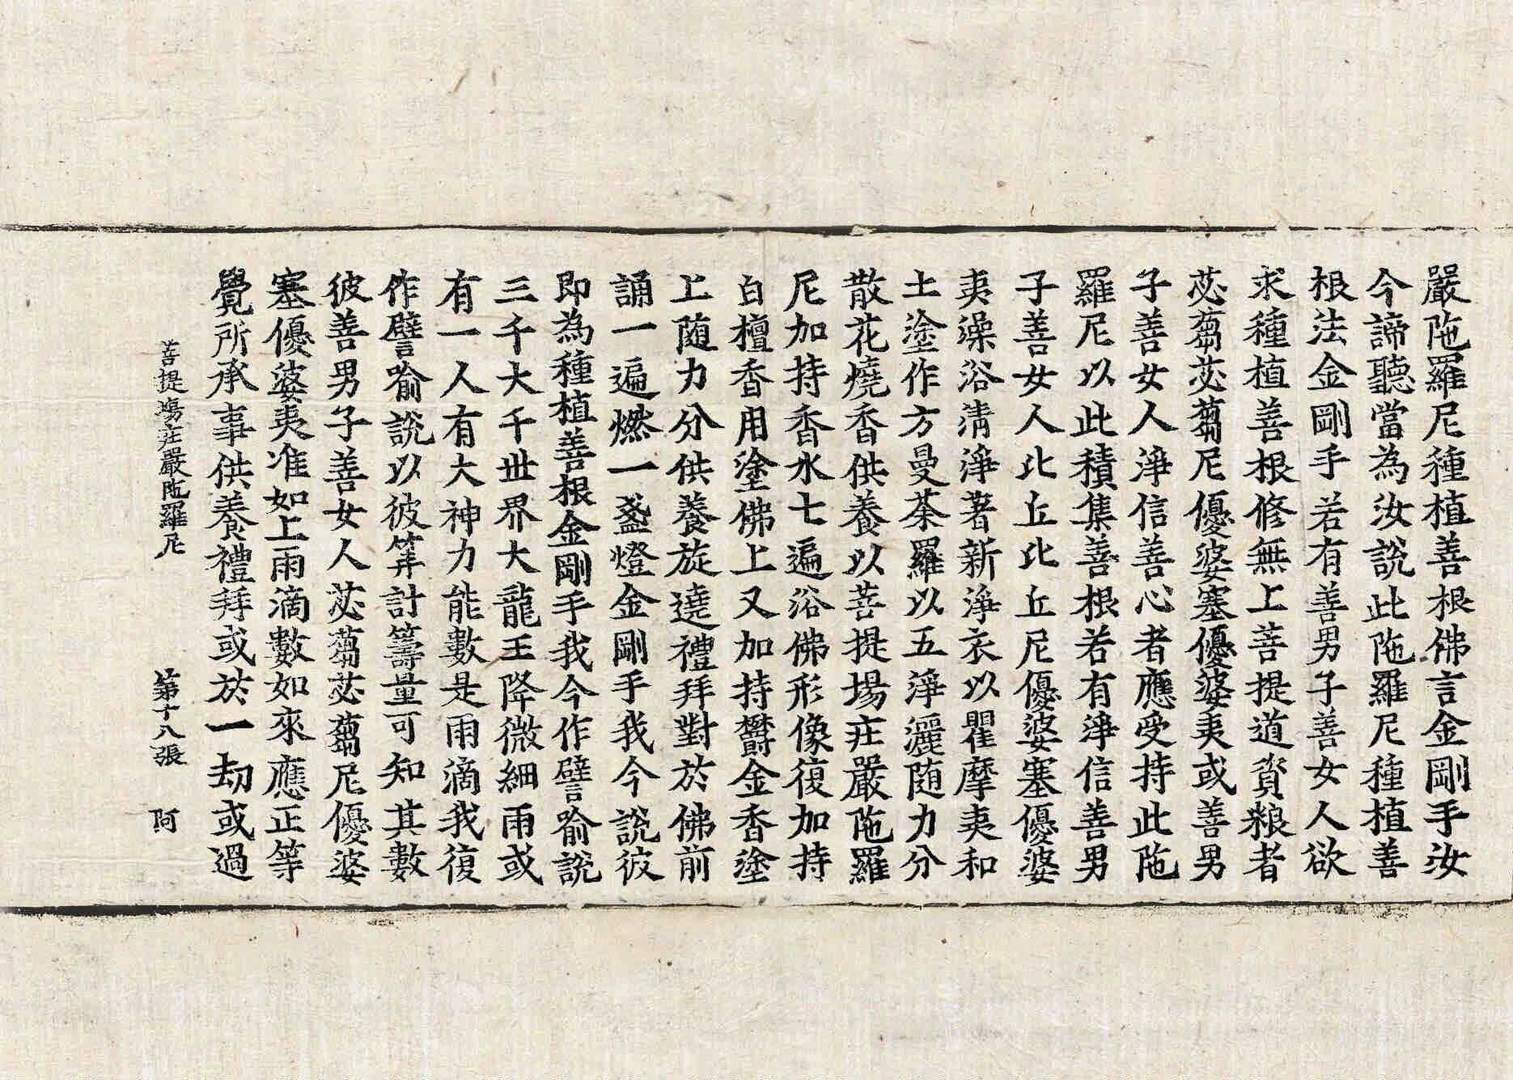 嚴陁羅尼種植善根佛言金剛手汝
今諦聽當為汝說此陁羅尼種植善
根法金剛手若有善男子善女人欲
求種植善根修無上菩提道資粮者
苾蒭苾蒭尼優婆塞優婆夷或善男
子善女人淨信善心者應受持此陁
羅尼以此積集善根若有淨信善男
子善女人比丘比丘尼優婆塞優婆
夷澡浴清淨著新淨衣以瞿摩夷和
土塗作方曼荼羅以五淨灑随力分
散花燒香供養以菩提場莊嚴陁羅
尼加持香水七遍浴佛形像復加持
白檀香用塗佛上又加持欝金香塗
上随力分供養旋遶禮拜對於佛前
誦一遍燃一盞燈金剛手我今說彼
即為種植善根金剛手我今作譬喻說
三千大千世界大龍王降微細雨或
有一人有大神力能數是雨滴我復
作譬喻說以彼筭計籌量可知其數
彼善男子善女人苾蒭苾蒭尼優婆
塞優婆夷准如上雨滴數如來應正等
覺所承事供養禮拜或於一劫或過
菩提場莊嚴陁羅尼 第十八張 阿